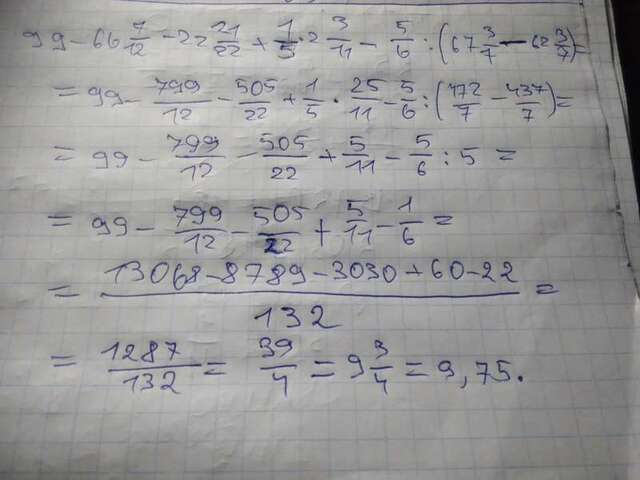 99 - 66 7/12 - 22 21/22 + 1/5 · 2 3/11 - 5/6 : (67 3/7 - 62 3/7) =
= 99 - 799/12 - 505/22 + 1/5 · 25/11 - 5/6 : (472/7 - 437/7) =
= 99 - 799/12 - 505/22 + 5/11 - 5/6 : 5 =
= 99 - 799/12 - 505/22 + 5/11 - 1/6 =
= 13068 - 8789 - 3030 + 60 - 22 / 132 =
= 1287/132 = 39/4 = 9 3/4 = 9,75.